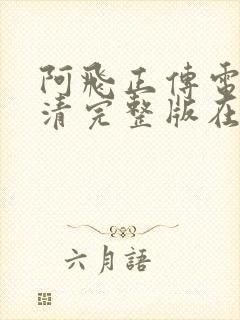 阿飛正傳電
清完整版在
六月語